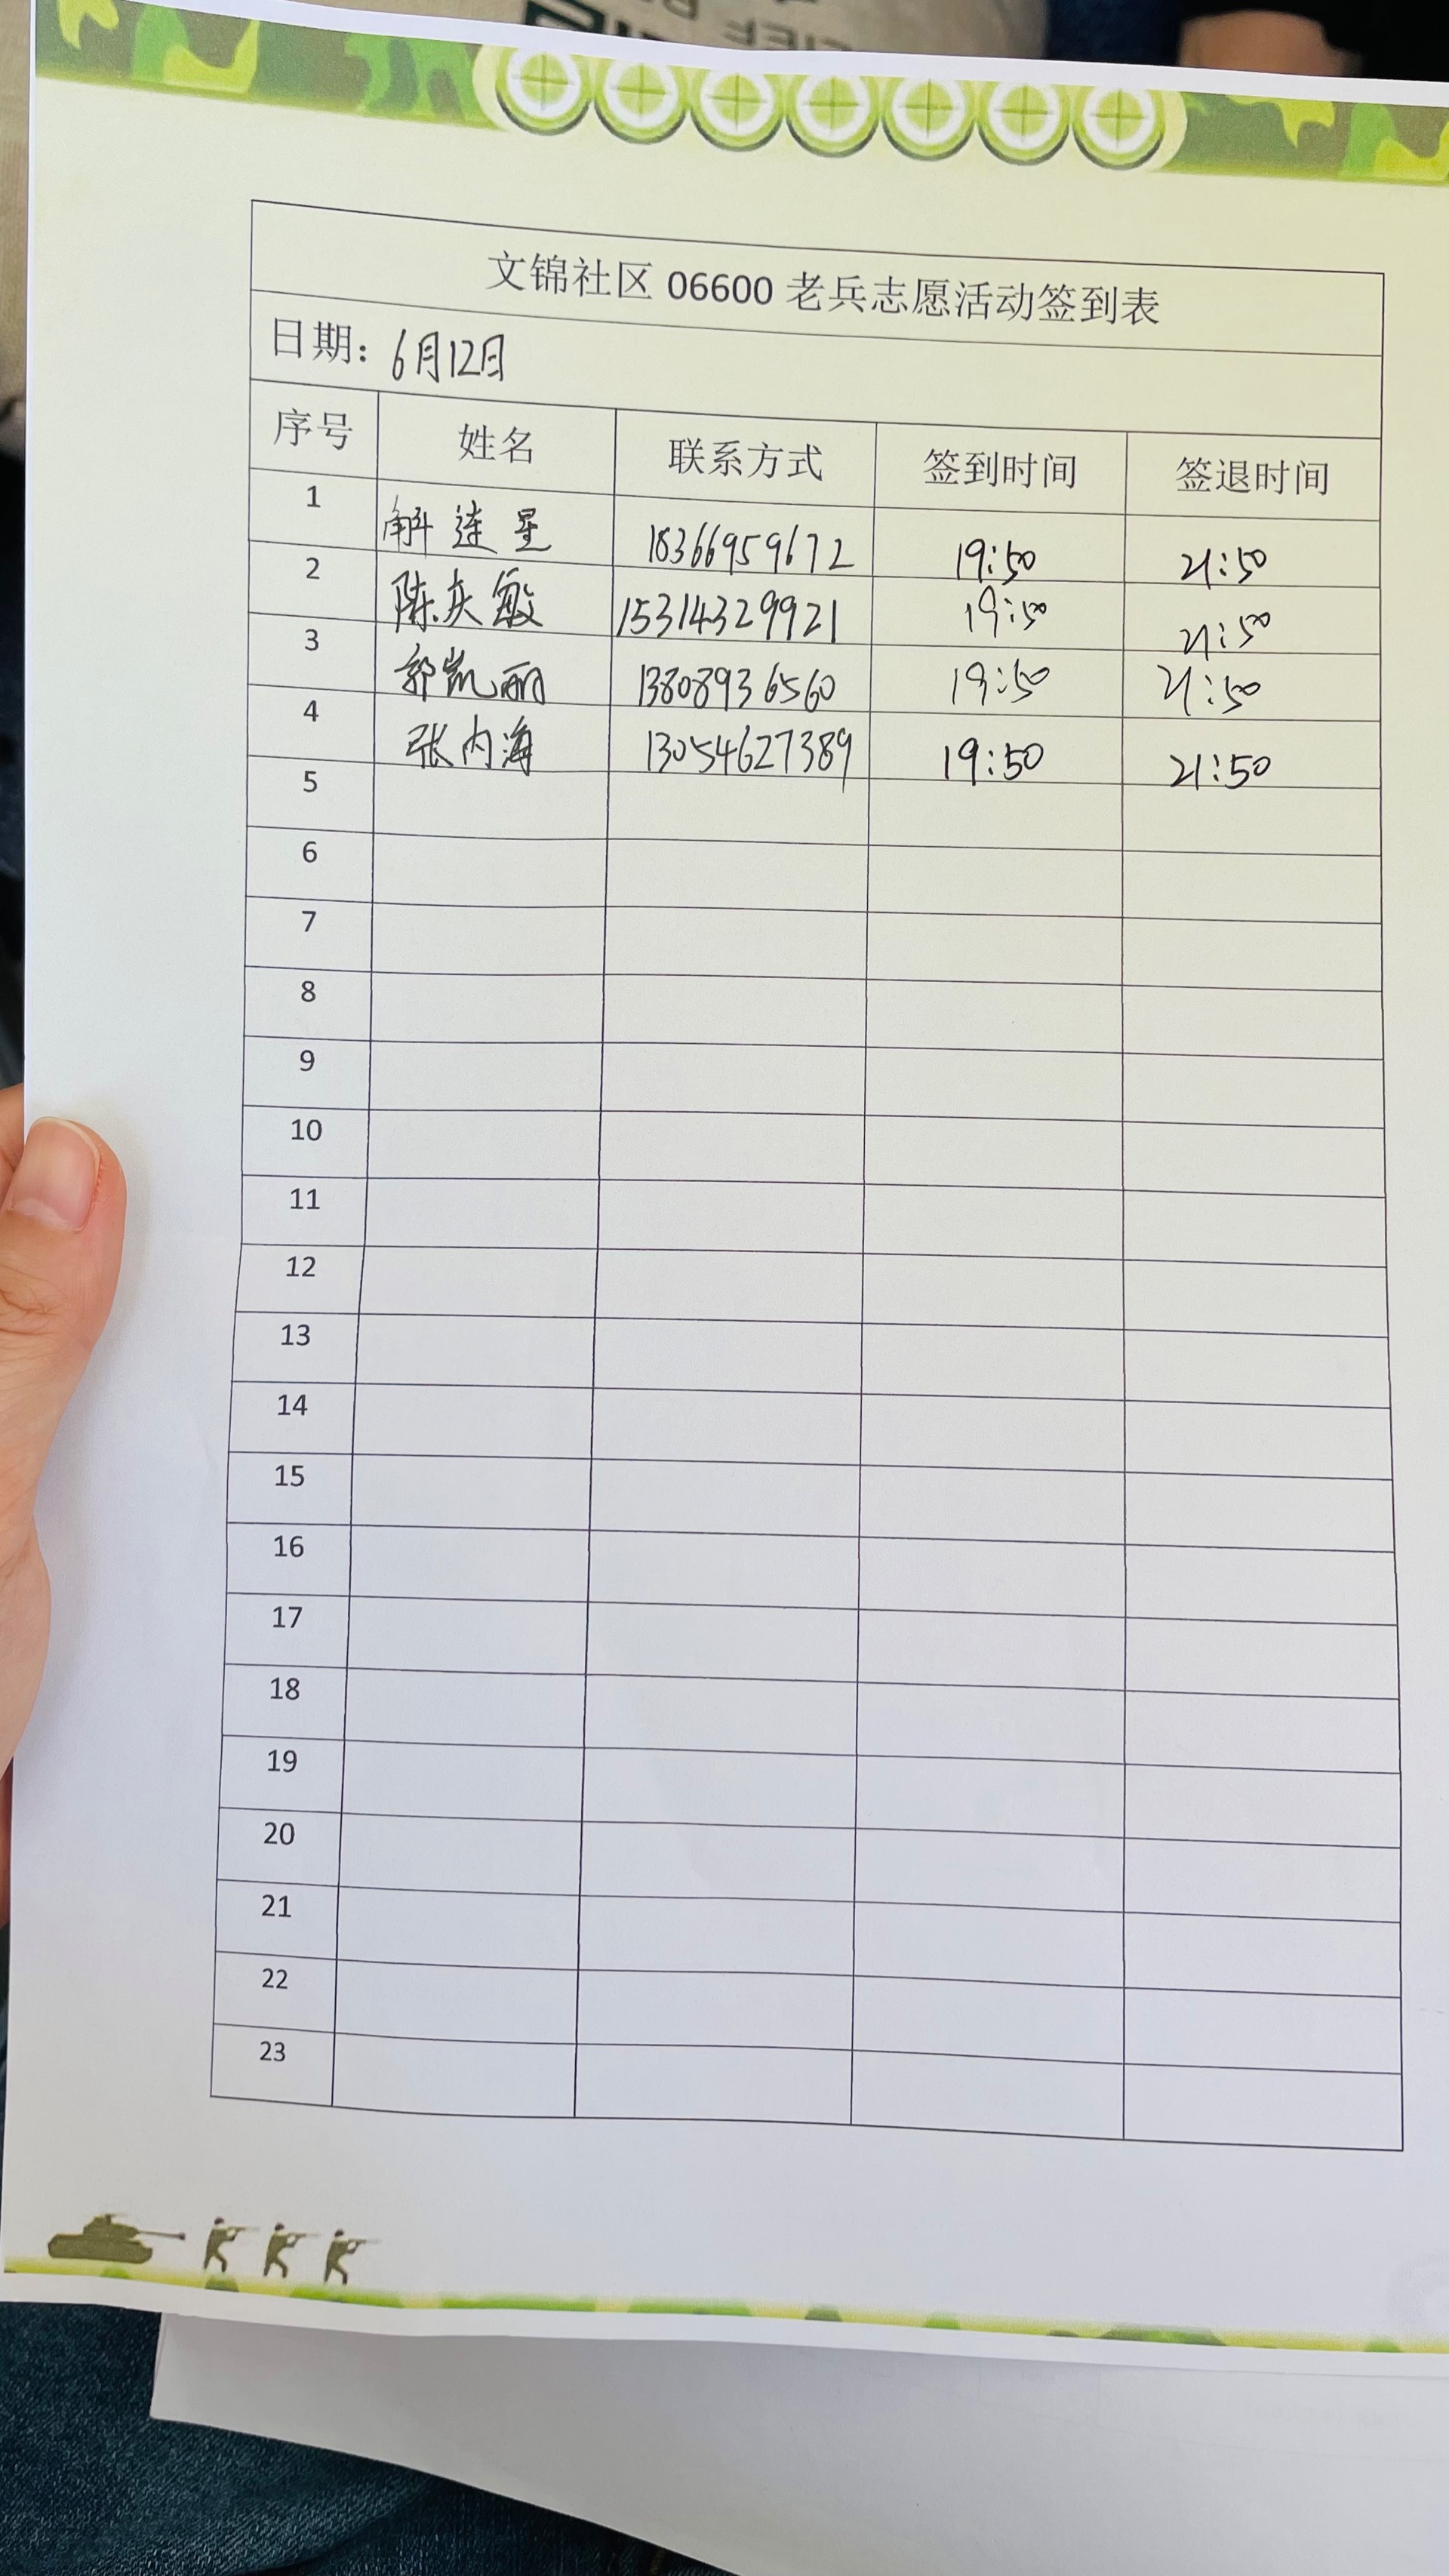 文锦社区 06600 老兵志愿活动签到表
日期：6月12日
序号 姓名 联系方式 签到时间 签退时间
1 解连星 18366959672 19:50 21:50
2 陈庆敏 15314329921 19:50 21:50
3 郭凯丽 13808936560 19:50 21:50
4 张内海 13054627389 19:50 21:50
5
6
7
8
9
10
11
12
13
14
15
16
17
18
19
20
21
22
23